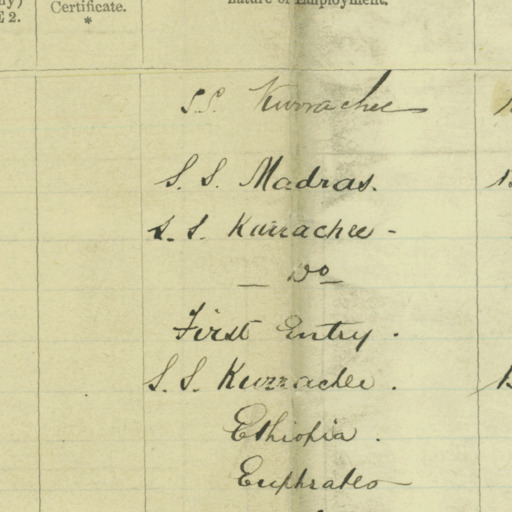 Certificate.
*
E 2.
Nature of Employment.
S.S. Kurrachee
S. S. Madras.
S. S. Kurrachee -
— Do —
First Entry.
S. S. Kurrachee.
Ethiopia.
Euphrates